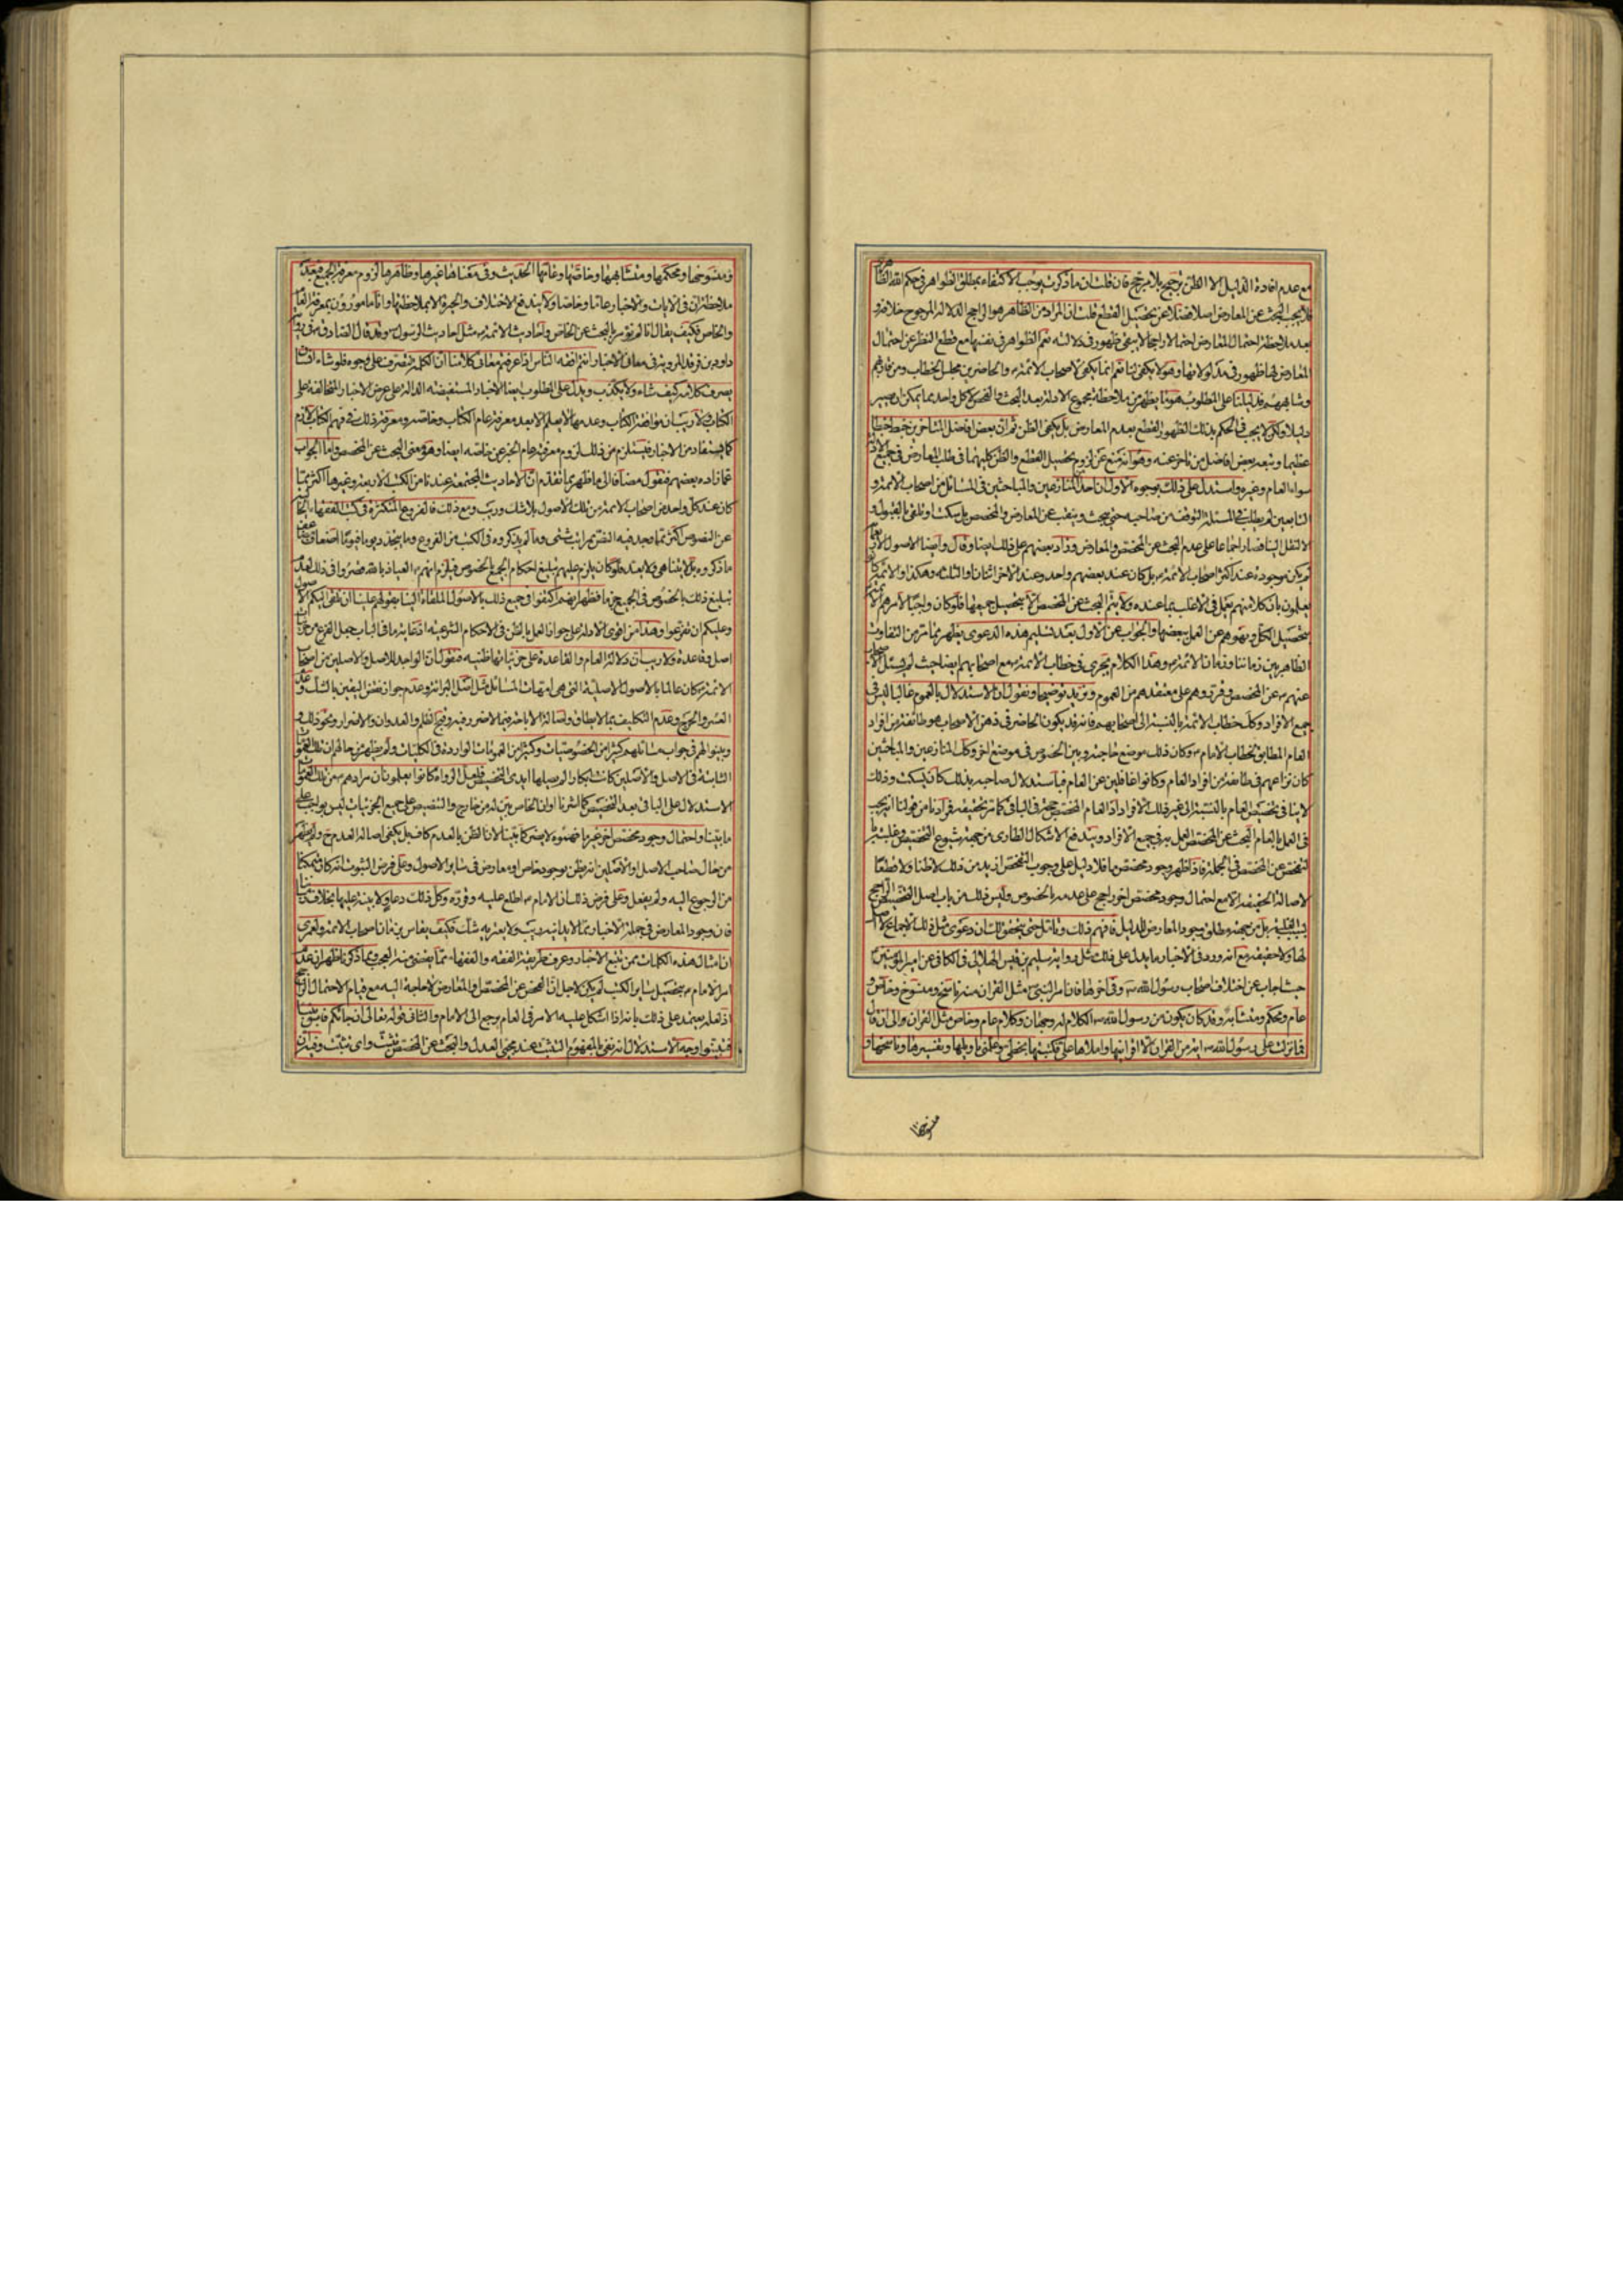 مع عدم افادة الدليل الا الظن ترجيح بلا مرجح فان قلت ان ما ذكرت يوجب الاكتفاء بمطلق الظواهر في حكم الله الظاهري
فلا يجب البحث عن المعارض اصلا فضلا عن تحصيل القطع قلت ان المراد من الظاهر هو الراجح الدلالة المرجوح خلافه و
بعد ملاحظة احتمال المعارض احتمالا راجحا لا يبقى ظهور في دلالته نعم الظواهر في نفسها مع قطع النظر عن احتمال
المعارض لها ظهور في مدلولاتها وهو لا يكفي لنا نعم انما يكفي لاصحاب الائمة والحاضرين مجلس الخطاب ومن قاربهم
وشابههم فدليلنا على المطلوب هو ما يظهر من ملاحظة مجموع الادلة بعد البحث والفحص لا كل واحد مما يمكن ان يصير
دليلا ولكن لا يجب في الحكم بذلك الظهور القطع بعدم المعارض بل يكفي الظن ثم ان بعض افاضل المتاخرين خبط خبطا
عظيما وتبعه بعض افاضل من تاخر عنه وهو انه منع عن لزوم تحصيل القطع والظن كليهما في طلب المعارض في جميع الادلة
سواء العام وغيره واستدل على ذلك بوجوه الاول ان احد المتنازعين والمباحثين في المسائل من اصحاب الائمة و
التابعين لم يطلب في المسئلة التوقف من صاحبه حتى يبحث وينقب عن المعارض والمخصص بل سكت او تلقى بالقبول و
الا لنقل الينا فصار اجماعا على عدم البحث عن المخصص والمعارض وزاد بعضهم على ذلك ايضا وقال وايضا الاصول الاربعمائة
لم يكن موجودة عند اكثر اصحاب الائمة بل كان عند بعضهم واحد وعند الاخر اثنان والثلثة وهكذا والائمة كانوا
يعلمون بان كلا منهم يعمل في الاغلب بما عنده ولا يتم البحث عن المخصص الا بتحصيل جميعها فلو كان واجبا لامرهم الائمة
بتحصيل الكل ونهوهم عن العمل ببعضها والجواب عن الاول بعد تسليم هذه الدعوى يظهر مما مر من التفاوت
الظاهر بين زماننا وزمان الائمة وهذا الكلام يجري في خطاب الائمة مع اصحابهم ايضا حيث لم يسئل الاصحاب
عنهم عن المخصص وقرروهم على معتقدهم من العموم ونزيد توضيحا ونقول ان الاستدلال بالعموم غالبا ليس في
جميع الافراد وكل خطاب الائمة بالنسبة الى اصحابهم فانه قد يكون الحاضر في ذهن الاصحاب هو طائفة من افراد
العام المطابق لخطاب الامام وكان ذلك موضع حاجته وبين الخصوص في موضع اخر وكل المتنازعين والمباحثين
كان نزاعهم في طائفة من افراد العام وكانوا غافلين عن العام فباستدلال صاحبه بذلك كان يسكت وذلك
لا ينافي تخصيص العام بالنسبة الى غير ذلك الافراد اذ العام المخصص حجة في الباقي كما مر تحقيقه فمرادنا من قولنا انه يجب
في العمل بالعام البحث عن المخصص العمل به في جميع الافراد وبه يندفع الاشكال الطاري من جهة شيوع التخصيص وغلبته بالتفحص عن المخصص في الجملة فاذا ظهر وجود مخصص ما فلا دليل على وجوب التفحص ازيد من ذلك لا ظنا ولا قطعا
لاصالة الحقيقة الا مع احتمال وجود مخصص اخر راجح على عدمه بالخصوص وليس ذلك من باب اصل التخصيص الراجح
بسبب الغلبة بل من جهة مطلق وجود المعارض للدليل فافهم ذلك وتامل حتى يتحقق لك ان دعوى مثل ذلك الاجماع لا اصل
لها ولا حقيقة مع انه ورد في الاخبار ما يدل على ذلك مثل رواية سليم بن قيس الهلالي في الكافي عن امير المؤمنين
حيث اجاب عن اختلاف اصحاب رسول الله وفي اخرها فان امر النبي مثل القران منه ناسخ ومنسوخ وخاص و
عام ومحكم ومتشابه وقد كان يكون من رسول الله الكلام له وجهان وكلام عام وخاص مثل القران والى ان قال
فما نزلت على رسول الله اية من القران الا اقرانيها واملاها علي فكتبتها بخطي وعلمني تاويلها وتفسيرها وناسخها و
منسوخها
ومنسوخها ومحكمها ومتشابهها وخاصها وعامها الحديث وفي معناها غيرها وظاهرها لزوم معرفة الجميع فبعد
ملاحظة ان في الايات والاخبار عاما وخاصا ولا يندفع الاختلاف والحيرة الا بملاحظتها وانا مامورون بمعرفة العام
والخاص فكيف يقال انا لم نؤمر بالبحث عن الخاص واحاديث الائمة مثل احاديث الرسول وقد قال الصادق في رواية
داود بن فرقد المروية في معاني الاخبار انتم افقه الناس اذا عرفتم معاني كلامنا ان الكلمة لتصرف على وجوه فلو شاء انسان
لصرف كلامه كيف شاء ولا يكذب ويدل على المطلوب ايضا الاخبار المستفيضة الدالة على عرض الاخبار المخالفة على
الكتاب ولا ريب ان موافقة الكتاب وعدمها لا يعلم الا بعد معرفة عام الكتاب وخاصه ومعرفة ذلك في فهم الكتاب لازم
كما يستفاد من الاخبار فيستلزم من ذلك لزوم معرفة عام الخبر عن خاصه ايضا وهو معنى البحث عن المخصص واما الجواب
عما زاده بعضهم فنقول مضافا الى ما ظهر مما تقدم ان الاحاديث المجتمعة عندنا من الكتب الاربعة وغيرها اكثر مما
كان عند كل واحد من اصحاب الائمة من تلك الاصول بلا شك وريب ومع ذلك فالفروع المتكثرة في كتب الفقهاء الخالية
عن النصوص اكثر مما وجد فيه النص بمراتب شتى وما لم يذكروه في الكتب من الفروع وما يتجدد يوما فيوما اضعاف
ما ذكروه بل لا يتناهى ولا يعد فلو كان يلزم عليهم تبليغ احكام الجميع بالخصوص فيلزم انهم العياذ بالله قصروا في ذلك لعدم
تبليغ ذلك بالخصوص في الجميع جزما فظهر انهم اكتفوا في جميع ذلك بالاصول الملقاة الينا بقولهم علينا ان نلقي اليكم الاصول
وعليكم ان تفرعوا وهذا من اقوى الادلة على جواز العمل بالظن في الاحكام الشرعية
اصل وقاعدة ولا ريب ان دلالة العام والقاعدة على جزئياتها ظنية فنقول ان الواجد للاصل والاصلين من اصحاب
الائمة كان عالما بالاصول الاصلية التي هي امهات المسائل مثل اصل البرائة وعدم جواز نقض اليقين بالشك و
العسر والحرج وعدم التكليف بما لا يطاق واصالة الاباحة فيما لا ضرر فيه وقبح الظلم والعدوان والاضرار ونحو ذلك و
وبينوا لهم في جواب مسائلهم كثيرا من الخصوصيات وكثيرا من العمومات الواردة في الكليات ولم يظهر من حالهم ان تلك العمومات
الثابتة في الاصل والاصلين كانت
الاستدلال على الباقي بعد التخصيص كما اشرنا او ان الخاص بين لهم من خارج والتنصيص على جميع الجزئيات ليس بواجب على
ما بينا واحتمال وجود مخصص اخر غير ما فهموه لا يضر كما بينا لانا الظن بالعدم كاف بل يكفي اصالة العدم ح ولم يظهر
من حال صاحب الاصل او الاصلين انه يظن بوجود خاص او معارض في سائر الاصول وعلى فرض الثبوت انه كان متمكنا
من الرجوع اليه ولم يفعل وعلى فرض ذلك ان الامام اطلع عليه وقرره وكل ذلك دعاو لا بينة عليها بخلاف زماننا
فان وجود المعارض في جملة الاخبار مما لا يدانيه ريب ولا يعتريه شك فكيف يقاس بزمان اصحاب الائمة ولعمري
ان امثال هذه الكلمات ممن تتبع الاخبار وعرف طريقة الفقه والفقهاء مما يقضي منه العجب ومما ذكرنا ظهر ان عدم
امر الامام بتحصيل سائر الكتب لم يكن لاجل ان الفحص عن المخصص والمعارض لا حاجة اليه مع قيام الاحتمال الراجح
اذ لعله يعتمد على ذلك بانه اذا اشكل عليه الامر في العام يرجع الى الامام والثاني قوله تعالى ان جائكم فاسق بنبا
فتبينوا وجه الاستدلال انه نفى بالمفهوم التثبت عند مجيء العدل والبحث عن المخصص تثبت واي تثبت وفيه ان